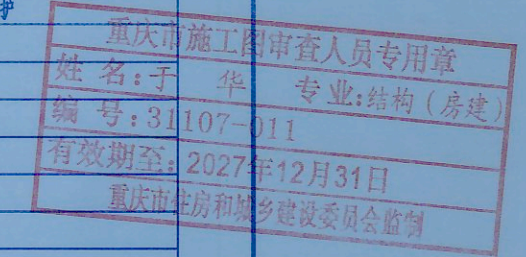 护
重庆市施工图审查人员专用章
姓 名:于 华 专 业:结构(房建)
编 号:31107-011
有效期至:2027年12月31日
重庆市住房和城乡建设委员会监制